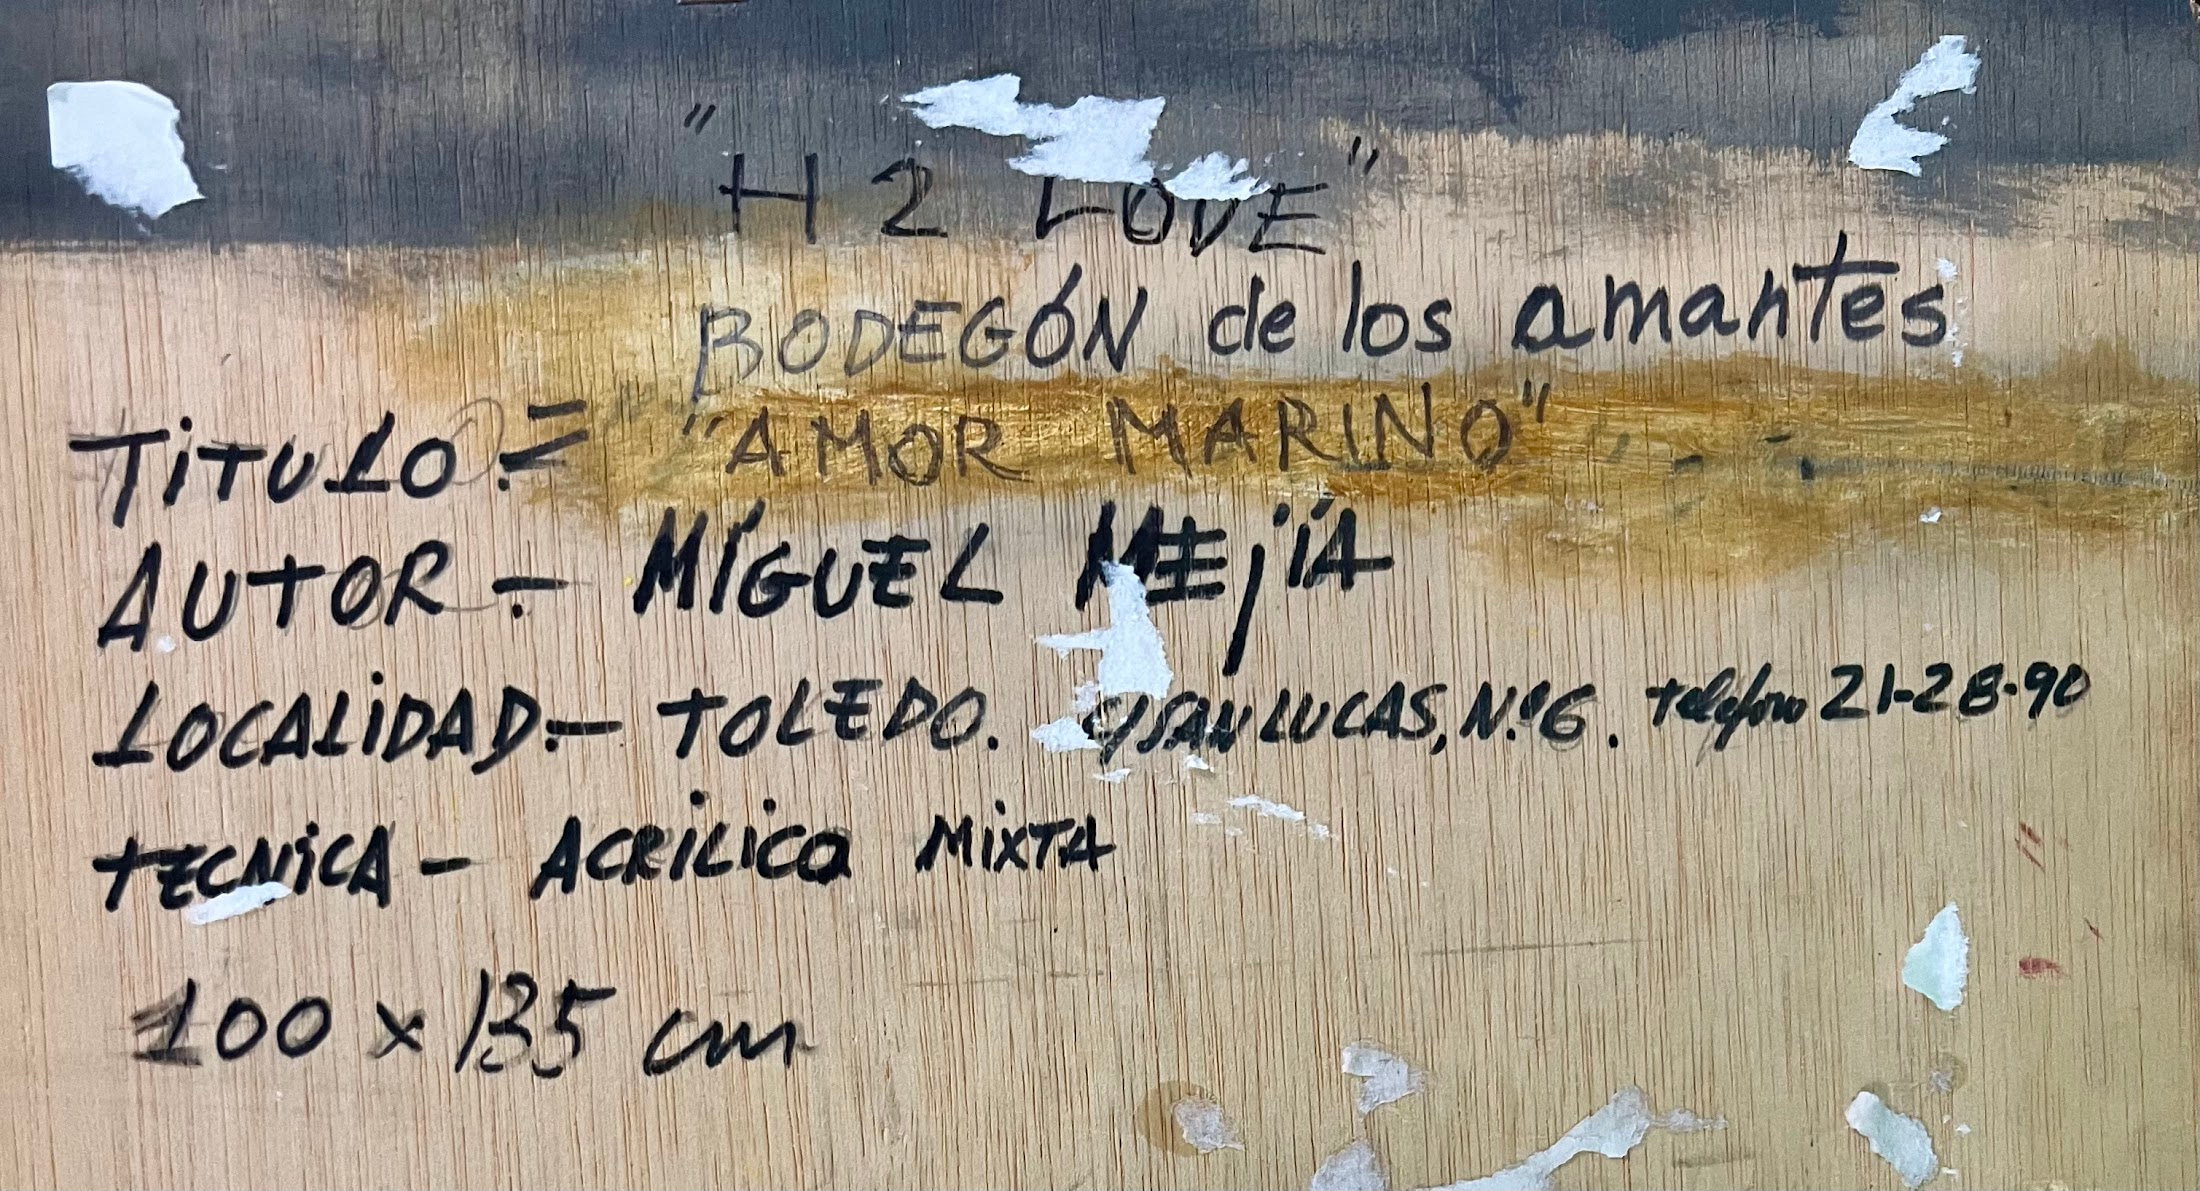 "H 2 LOVE"
BODEGÓN de los amantes
TiTULO = "AMOR MARINO"
AUTOR - MiGUEL MEjíA
LOCALiDAD.- TOLEDO. C/SAN LUCAS, N.º 6. telefono 21-28-90
TECNiCA - ACRiLiCO MiXTA
100 x 135 cm